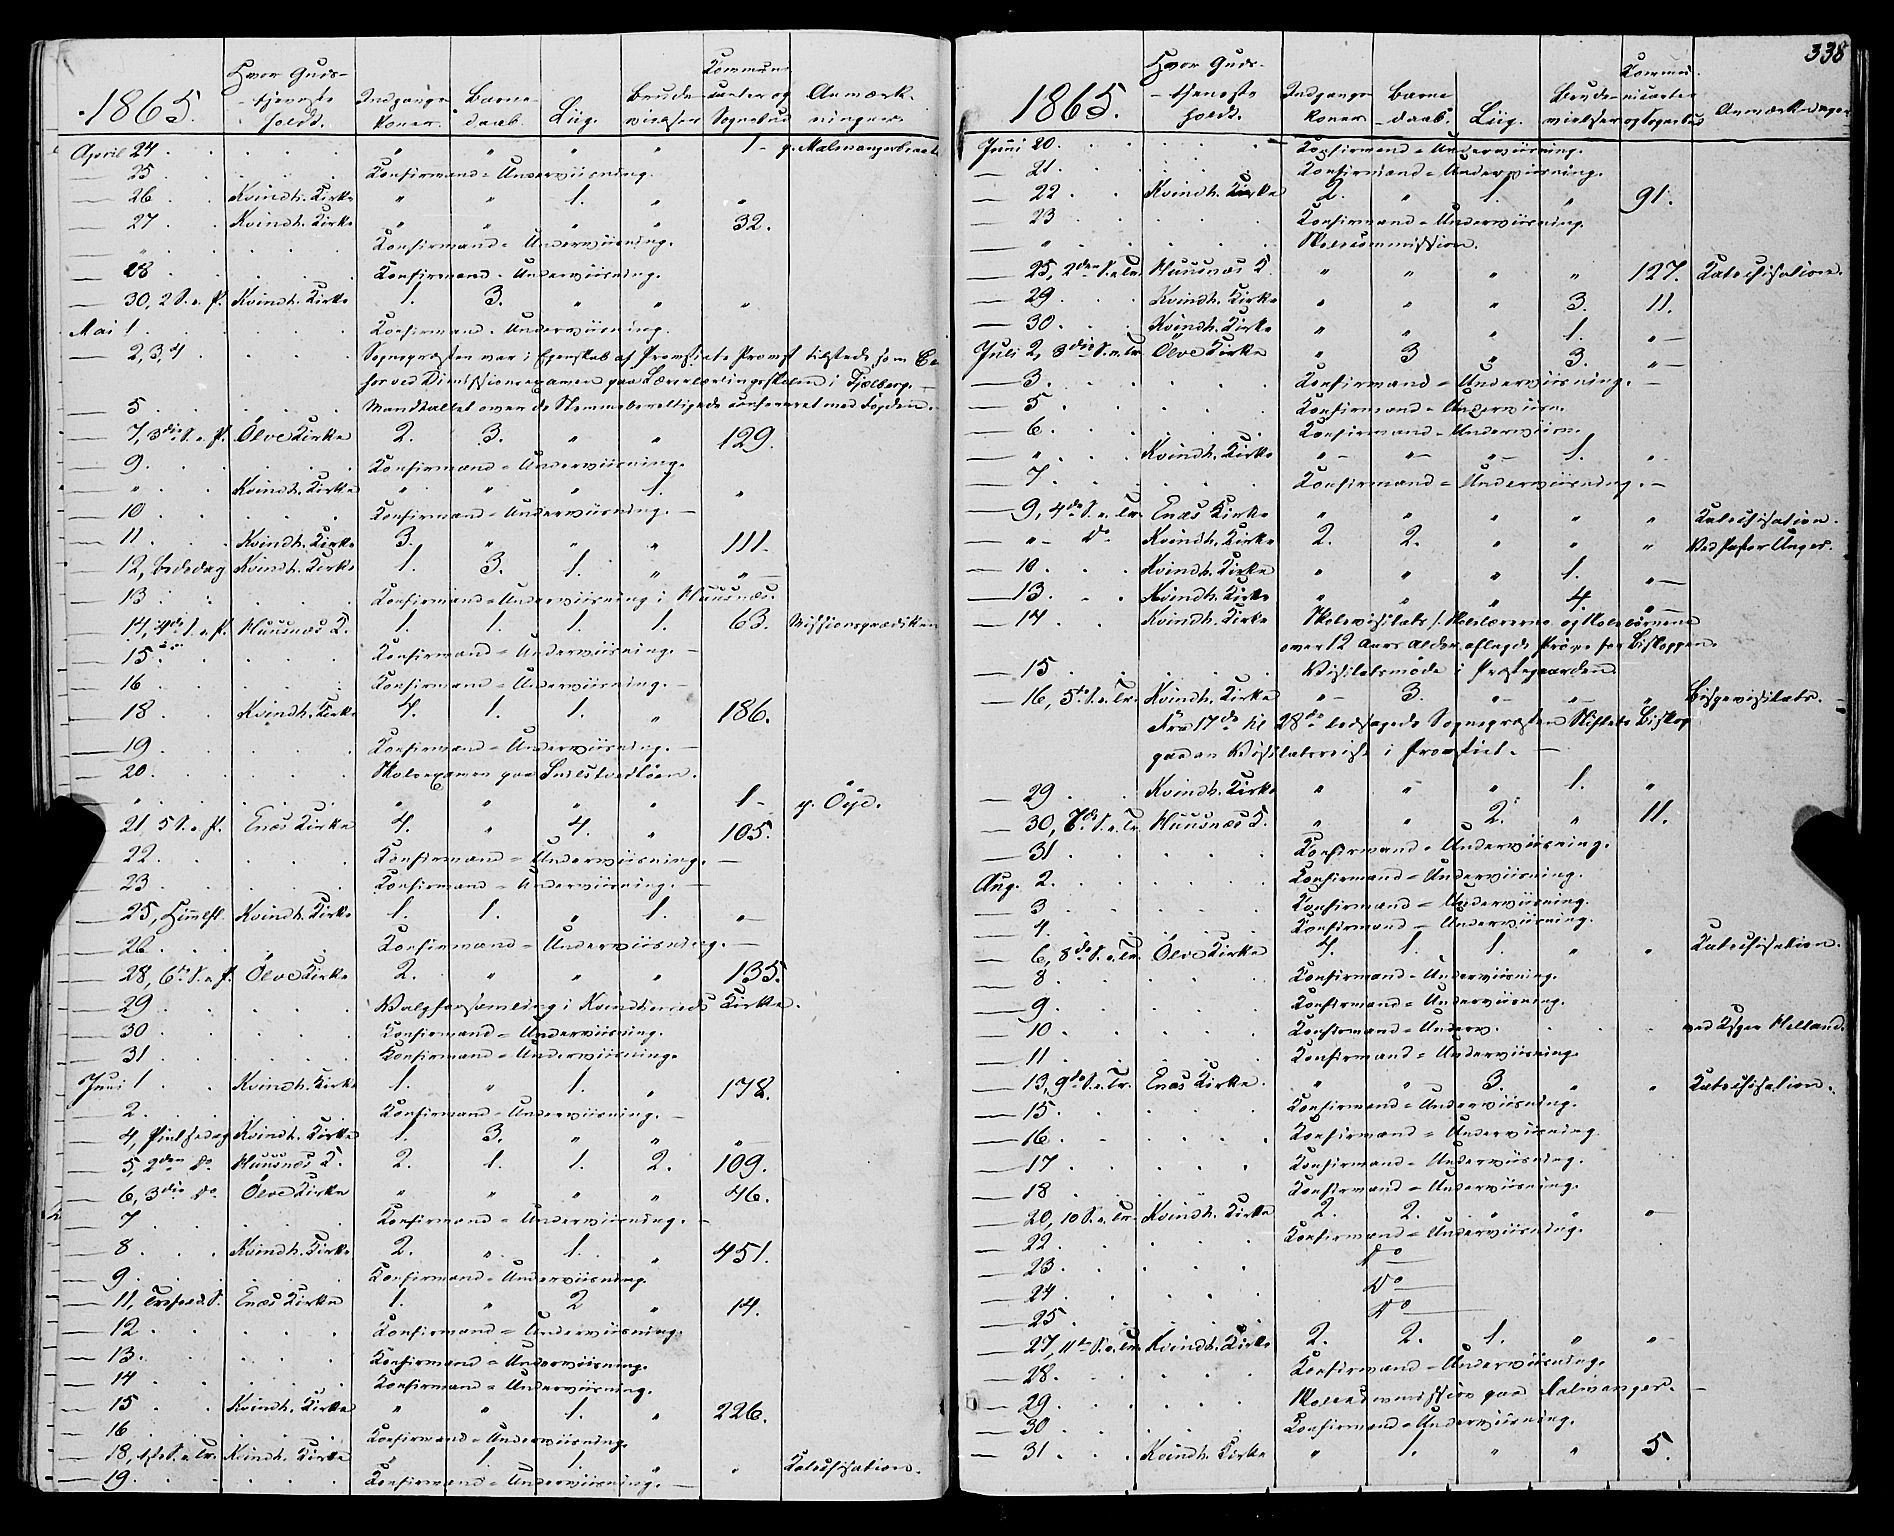 1865.
Hvor Guds-
Communi-
-tjeneste
Indgangs-
Barne-
Brude-
canter og
Anmærk-
holdt.
Koner.
daab.
Liig.
vielser
Sognebud
ninger.
April 24 . . . . . " " " " 1 - p. Malmanger
— 25 . . . . . Confirmand-Underviisning.
— 26 . . Kvindh. Kirke " " 1. " "
— 27 . . Kvindh. Kirke " " " " 32.
— " . . . . . Confirmand-Underviisning.
— 28 . . . . . Confirmand-Underviisning.
— 30, 2 S. e. P. Kvindh. Kirke 1. 3. " " "
Mai 1 . . . . . Confirmand-Underviisning.
— 2, 3, 4 . . . . Sognepræsten var i Egenskab af Provstiets Provst tilstede som
ved Dimissionsexamen paa Lærerlæringsskolen i Fjelberg. —
— 5 . . . . . Mandtallet over de Stemmeberettigede confereret med Fogden. —
— 7, 3die S. e. P. Ölve Kirke 2. 3. " " 129.
— 9. . . . . Confirmand-Underviisning.
— " . . Kvindh. Kirke " " " 1. "
— 10 . . . . . Confirmand-Underviisning. —
— 11 . . Kvindh. Kirke 3. " " " 111.
— 12, Bededag Kvindh. Kirke 1. 3. 1. " " —
— 13 . . . . . Confirmand-Underviisning i Huusnæs.
— 14, 4de S. e. P. Huusnæs K. 1. 1. 1. 1. 63. Missionsprædiken
— 15 . . . . . Confirmand-Underviisning. —
— 16 . . . . . Confirmand-Underviisning. —
— 18 . . Kvindh. Kirke 4. 1. 1. " 186.
— 19 . . . . . Confirmand-Underviisning. —
— 20. . . . . Skoleexamen paa
— " . . . . . " " " " 1 - p. Öye.
— 21, 5 S. e. P. Enæs Kirke 4. " 4. " 105.
— 22. . . . . Confirmand-Underviisning. —
— 23 . . . . . Confirmand-Underviisning. —
— 25, Himlfl. Kvindh. Kirke 1. 1. " 1. " —
— 26 . . . . . Confirmand-Underviisning. —
— 28, 6te S. e. P. Ölve Kirke 2. " " " 135.
— 29 . . . . . Valgforsamling i Kvindherreds Kirke.
— 30 . . . . . Confirmand-Underviisning.
— 31 . . . . . Confirmand-Underviisning.
Juni 1 . . Kvindh. Kirke 1. " 1. " 178.
— 2. . . . . Confirmand-Underviisning. —
— 4, Pintsedag Kvindh. Kirke 1. 3. " " " —
— 5, 2den do Huusnæs K. 2. 1. 1. 2. 109.
— 6, 3die do Ölve Kirke " " " " 46.
— 7 . . . . . Confirmand-Underviisning. —
— 8 . . . Kvindh. Kirke 2. " 1. " 451.
— 9 . . . . . Confirmand-Underviisning.
— 11, Trefold. S. Enæs Kirke 1. " 2 " 14.
— 12 . . . . . Confirmand-Underviisning.
— 13. . . . . Confirmand-Underviisning.
— 14 . . . . . Confirmand-Underviisning.
— 15 . . Kvindh. Kirke " " 1. " 226.
— 16 . . . . . Confirmand-Underviisning.
— 18, 1ste S. e. Tr. Kvindh. Kirke 1. 1. " " Katechisation.
— 19. . . . . Confirmand-Underviisning. —
338
1865.
Hvor Guds-
Commu-
-tjeneste
Indgangs-
Barne-
Brude-
nicanter
holdt.
koner
-daab.
Liig.
vielser
og Sognebud
Anmærkninger
Juni 20. . . . . Confirmand-Underviisning.
— 21. . . . . Confirmand-Underviisning.
— 22 . . Kvindh. Kirke 2. " 1. " 91.
— 23 . . . . Confirmand-Underviisning.
— " . . . . . Skolecommission.
— 25, 2den S. e. Tr. Huusnæs K. " " " " 127. Katechisation.
— 29 . . Kvindh. Kirke " " " 3. 11.
— 30. . . Kvindh. Kirke " " " 1. " —
Juli 2, 3die S. e. Tr. Ölve Kirke " 3 " 3. " —
— 3. . . . . Confirmand-Underviisning. —
— 5 . . . . . Confirmand-Underviisn.
— 6. . . . . Confirmand-Underviisn.
— " . . . Kvindh. Kirke " — " — " — 1. " -
— 7 . . . . . Confirmand-Underviisning. —
— 9, 4de S. e. Tr. Enæs Kirke " " " " " Katechisation.
— " - do Kvindh. Kirke 2. 2. " " " Ved Pastor Unger.
— 10 . . . Kvindh. Kirke " " " 1. " —
— 13. . . Kvindh. Kirke " " " 4. " —
— 14 . . Kvindh. Kirke Skolevisitats /: Skolelærerne og Skolebörnene
over 12 Aars Alder aflagde Pröve for Biskoppen.
— 15 . . . . . Visitatsmöde i Præstegaarden
— 16, 5te S. e. Tr. Kvindh. Kirke " - 3. " - " - " Bispevisitats. —
Fra 17de til 28de ledsagede Sognepræsten Stiftets Biskop
paa en Visitatsreise i Provstiet. —
— 29 . . Kvindh. Kirke " " " 1. "
— 30, 7de S. e. Tr. Huusnæs K. " " 2. " 11.
— 31 . . . . . Confirmand-Underviisning.
Aug. 2. . . . . . Confirmand-Underviisning.
— 3 . . . . . Confirmand-Underviisning.
— 4. . . . . Confirmand-Underviisning.
— 6, 8de S. e. Tr. Ölve Kirke 4. 1. 1. " " Katechisation.
— 8 . . . . . Confirmand-Underviisning.
— 9. . . . . Confirmand-Underviisning.
— 10 . . . . . Confirmand-Underv. . . . ved Ksgr Helland.
— 11 . . . . . Confirmand-Underviisning.
— 13, 9de S. e. Tr. Enæs Kirke. " " 3. " " Katechisation.
— 15 . . . . . Confirmand-Underviisning.
— 16. . . . . Confirmand-Underviisning.
— 17 . . . . . Confirmand-Underviisning.
— 18 . . . . . Confirmand-Underviisning.
— 20, 10 S. e. Tr. Kvindh. Kirke 2. 2. " " " —
— 22. . . . . Confirmand-Underviisning.
— 23 . . . . . Do —
— 24 . . . . Do —
— 25 . . . . . Do —
— 27, 11te S. e. Tr. Kvindh. Kirke 2. 2. 1. " " —
— 28. . . . . Confirmand-Underviisning.
— 29 . . . . . Skolecommission paa Malmanger. —
— 30 . . . . . Confirmand-Underviisning.
— 31 . . . Kvindh. Kirke " 1. " " 5.